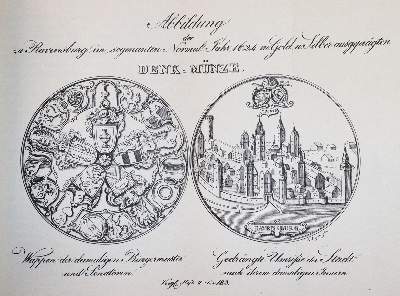 Abbildung
der
zu Ravensburg im sogenanten Normal-Jahr 1624 in Gold u. Silber ausgeprägten
DENK-MÜNZE.
RAVENSBURG
Wappen der damaligen Bürgermeister
und Senatoren
Gedrängte Umrisse der Stadt
nach ihrem damaligen Innern